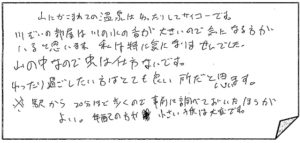 山にかこまれての温泉はゆったりしてサイコーです。
川ぞいの部屋は川の水の音が大きいので気になる方が
いると思います 私は特に気になりませんでした。
山の中なので虫は仕方ないです。
ゆったり過ごしたい方はとても良い所だと思います。
※ 駅から20分ほど歩くので事前に調べておいたほうが
よい。年配の方や 小さい子供は大変です。